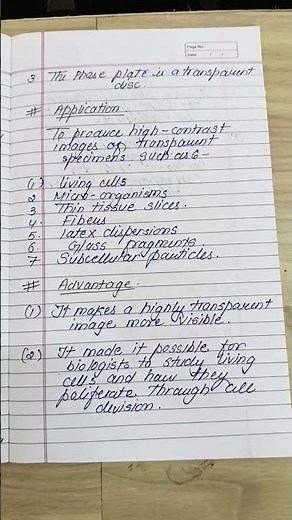 Page No.
Date / /
3. The Phase plate is a transparent
disc.
# Application.
To produce high-contrast
images of transparent
specimens such as:-
(1) living cells
2 Micro-organisms
3 Thin tissue slices.
4. Fibers
5. latex dispersions
6 Glass fragments.
7 Subcellular particles.
# Advantage.
(1) It makes a highly transparent
image more visible.
(2) It made it possible for
biologists to study living
cells and how they
poliferate through cell
division.